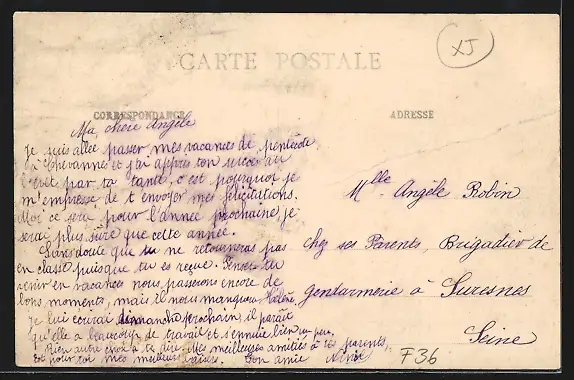 XJ
CARTE POSTALE
CORRESPONDANCE
ADRESSE
Ma chère Angèle
Je suis allée passer mes vacances de pentecôte
à Chevannes et j'ai appris ton succès au
brevet par ta tante, c'est pourquoi je
m'empresse de t'envoyer mes félicitations.
Moi ce sera pour l'année prochaine, je
serai plus sûre que cette année.
Sans doute que tu ne retourneras pas
en classe puisque tu es reçue. Penses-tu
venir en vacances nous passerons encore de
bons moments, mais il nous manquera Hélène
je lui écrirai dimanche prochain, il paraît
qu'elle a beaucoup de travail et s'ennuie bien un peu.
Rien autre chose à te dire. Mes meilleures amitiés à tes parents,
et pour toi mes meilleurs baisers. Ton amie
Mlle Angèle Robin
chez ses Parents, Brigadier de
gendarmerie à Suresnes
Seine
F36